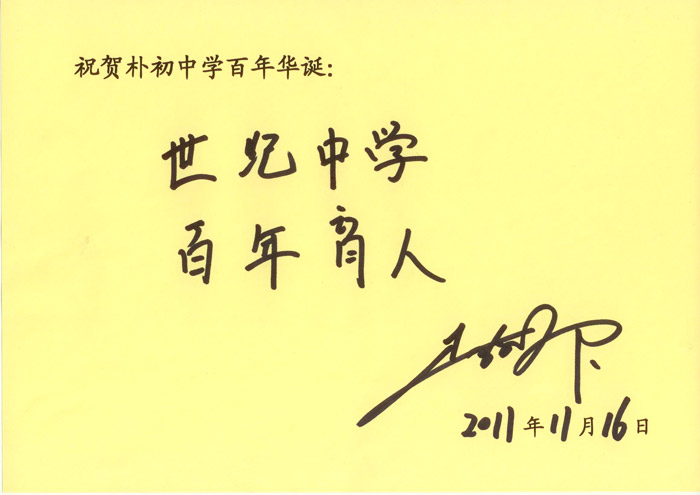 祝贺朴初中学百年华诞：
世纪中学
百年育人
2011年11月16日